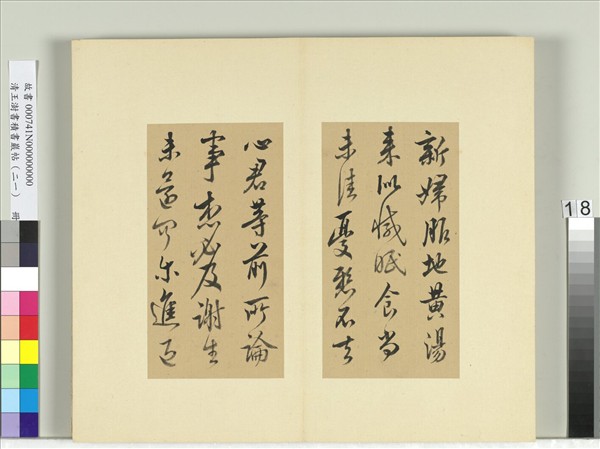 新婦服地黃湯
來似減眠食尚
未佳憂懸不去
心君等前所論
事想必及謝生
未還可尔進退
故書 000741N000000000
清王澍書積書巖帖（二一） 冊
18